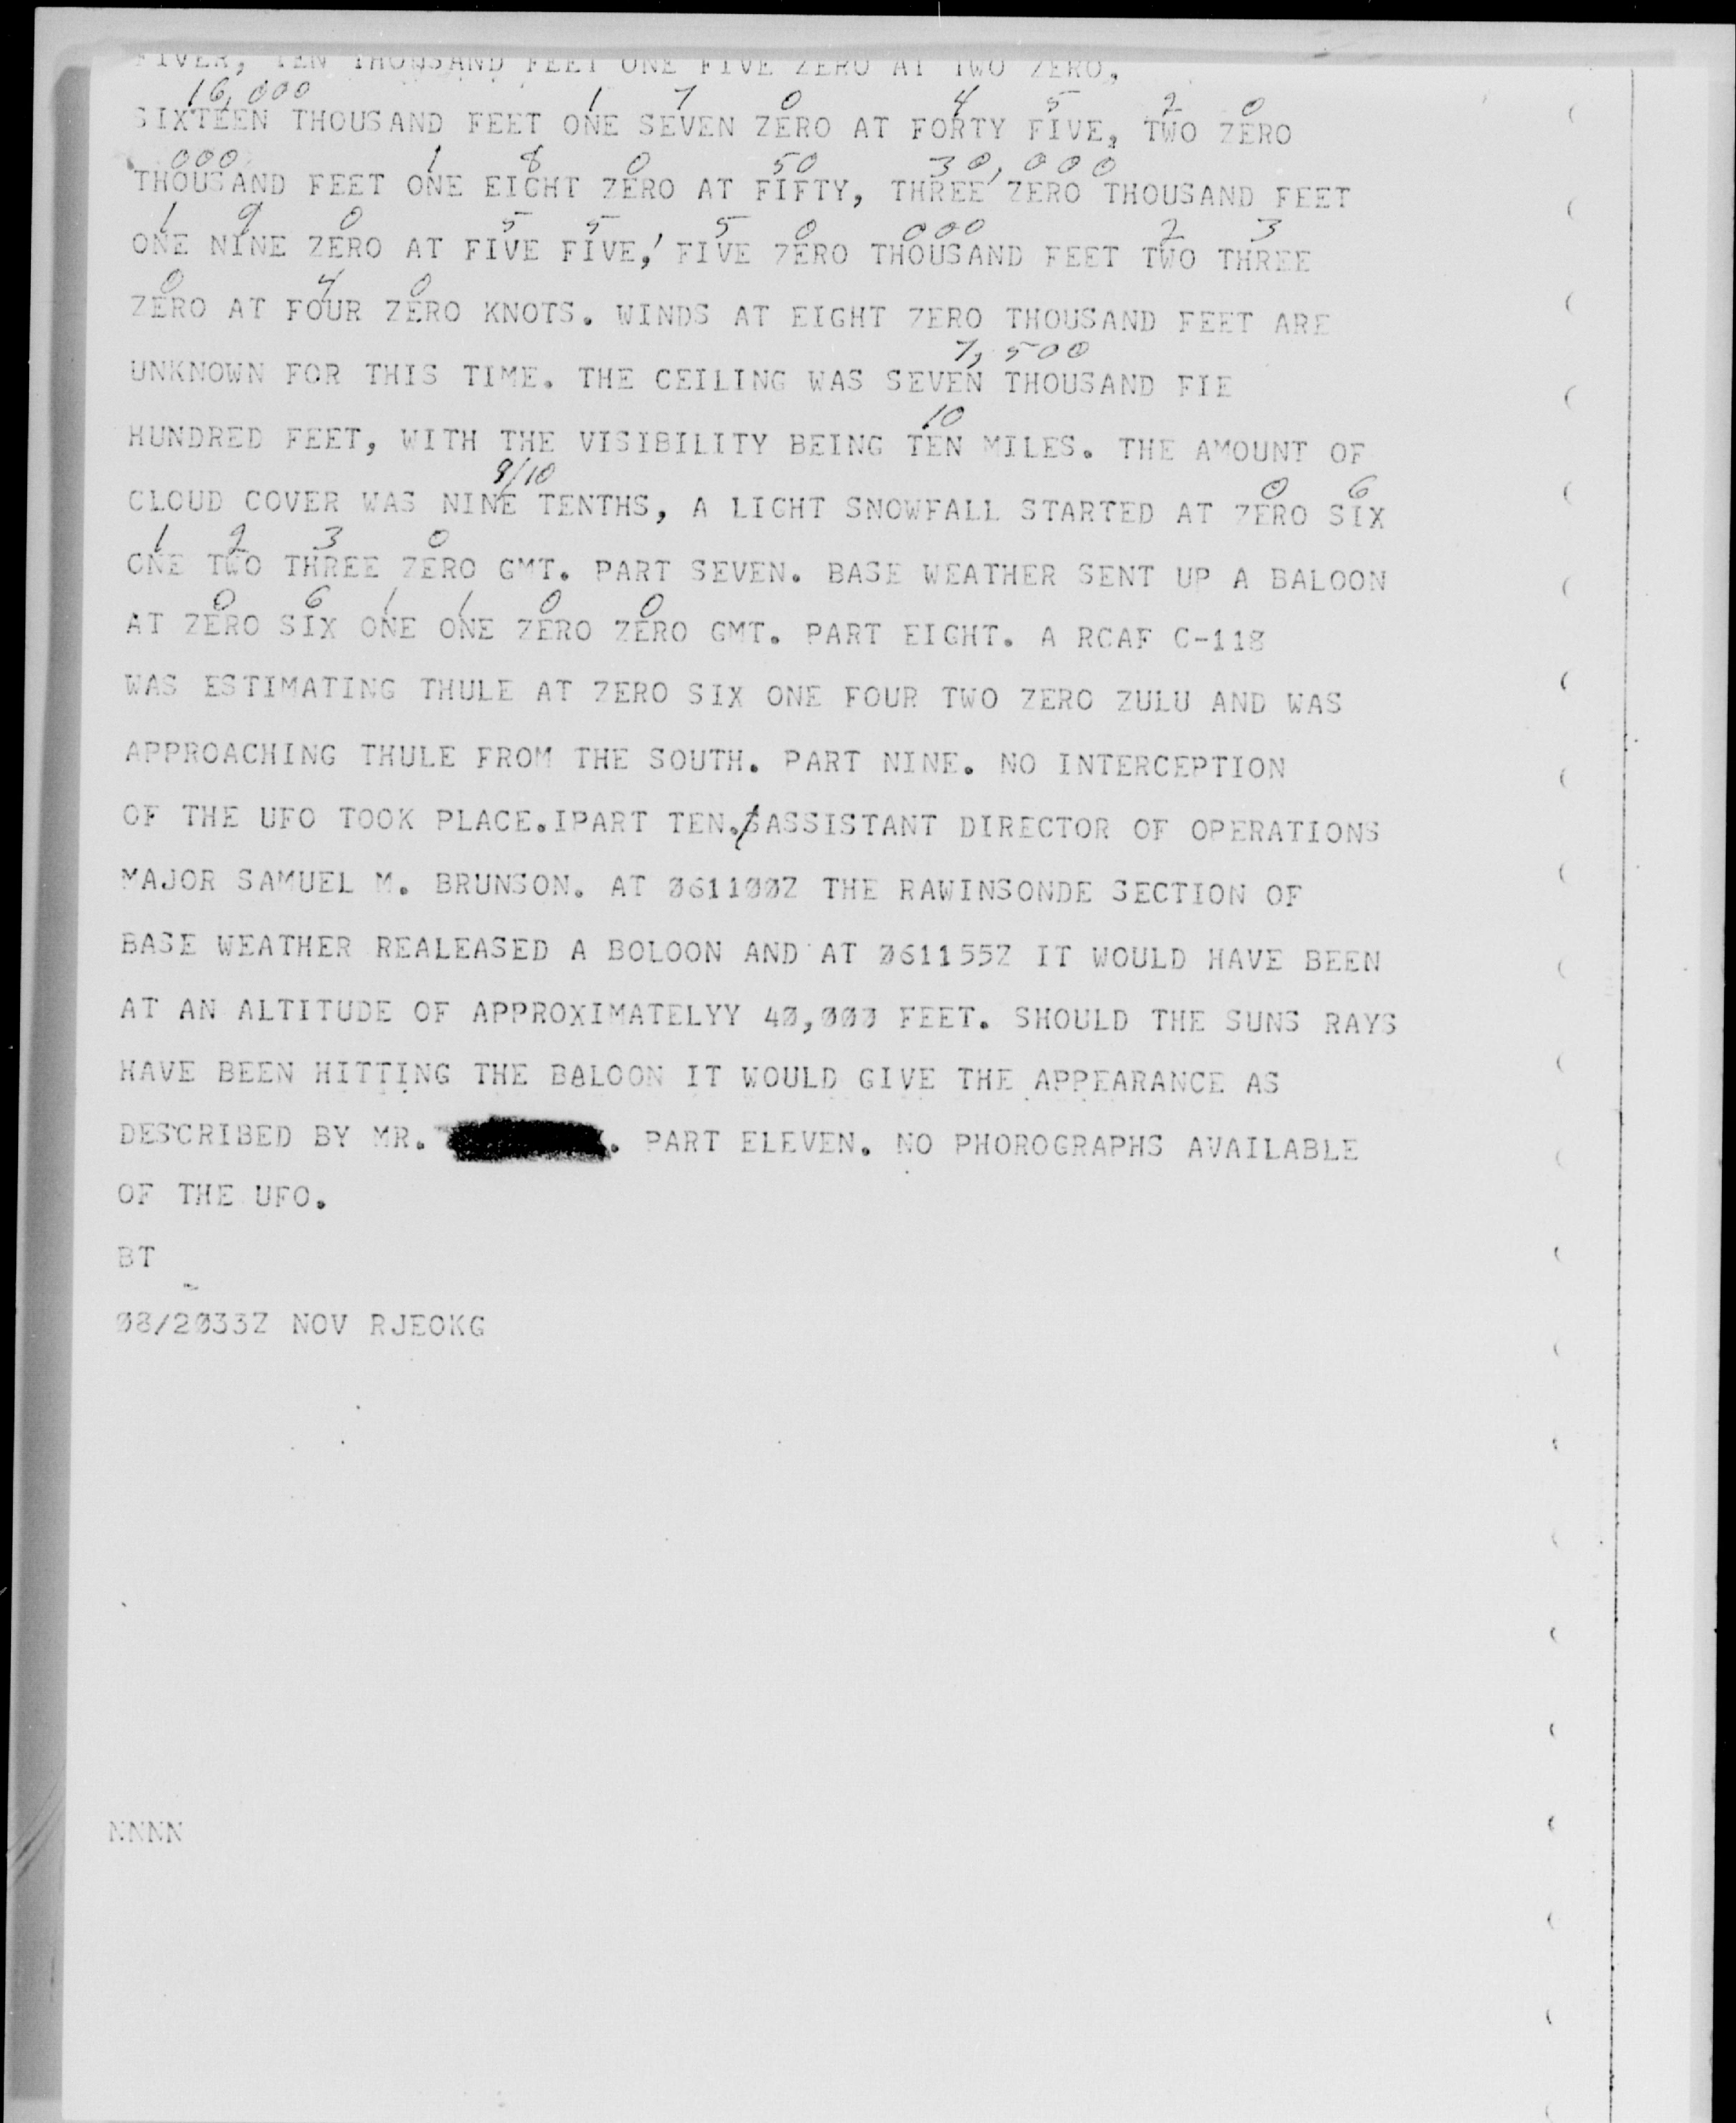 FIVER, TEN THOUSAND FEET ONE FIVE ZERO AT TWO ZERO,
16,000 1 7 0 4 5 2 0
SIXTEEN THOUSAND FEET ONE SEVEN ZERO AT FORTY FIVE, TWO ZERO
000 1 8 0 50 30,000
THOUSAND FEET ONE EIGHT ZERO AT FIFTY, THREE ZERO THOUSAND FEET
1 9 0 5 5 5 0 000 2 3
ONE NINE ZERO AT FIVE FIVE, FIVE ZERO THOUSAND FEET TWO THREE
0 4 0
ZERO AT FOUR ZERO KNOTS. WINDS AT EIGHT ZERO THOUSAND FEET ARE
7,500
UNKNOWN FOR THIS TIME. THE CEILING WAS SEVEN THOUSAND FIE
10
HUNDRED FEET, WITH THE VISIBILITY BEING TEN MILES. THE AMOUNT OF
9/10 0 6
CLOUD COVER WAS NINE TENTHS, A LIGHT SNOWFALL STARTED AT ZERO SIX
1 2 3 0
ONE TWO THREE ZERO GMT. PART SEVEN. BASE WEATHER SENT UP A BALOON
0 6 1 1 0 0
AT ZERO SIX ONE ONE ZERO ZERO GMT. PART EIGHT. A RCAF C-118
WAS ESTIMATING THULE AT ZERO SIX ONE FOUR TWO ZERO ZULU AND WAS
APPROACHING THULE FROM THE SOUTH. PART NINE. NO INTERCEPTION
OF THE UFO TOOK PLACE.IPART TEN. ASSISTANT DIRECTOR OF OPERATIONS
MAJOR SAMUEL M. BRUNSON. AT 061100Z THE RAWINSONDE SECTION OF
BASE WEATHER REALEASED A BOLOON AND AT 061155Z IT WOULD HAVE BEEN
AT AN ALTITUDE OF APPROXIMATELYY 40,000 FEET. SHOULD THE SUNS RAYS
HAVE BEEN HITTING THE BALOON IT WOULD GIVE THE APPEARANCE AS
DESCRIBED BY MR. . PART ELEVEN. NO PHOROGRAPHS AVAILABLE
OF THE UFO.
BT
08/2033Z NOV RJEOKG
NNNN